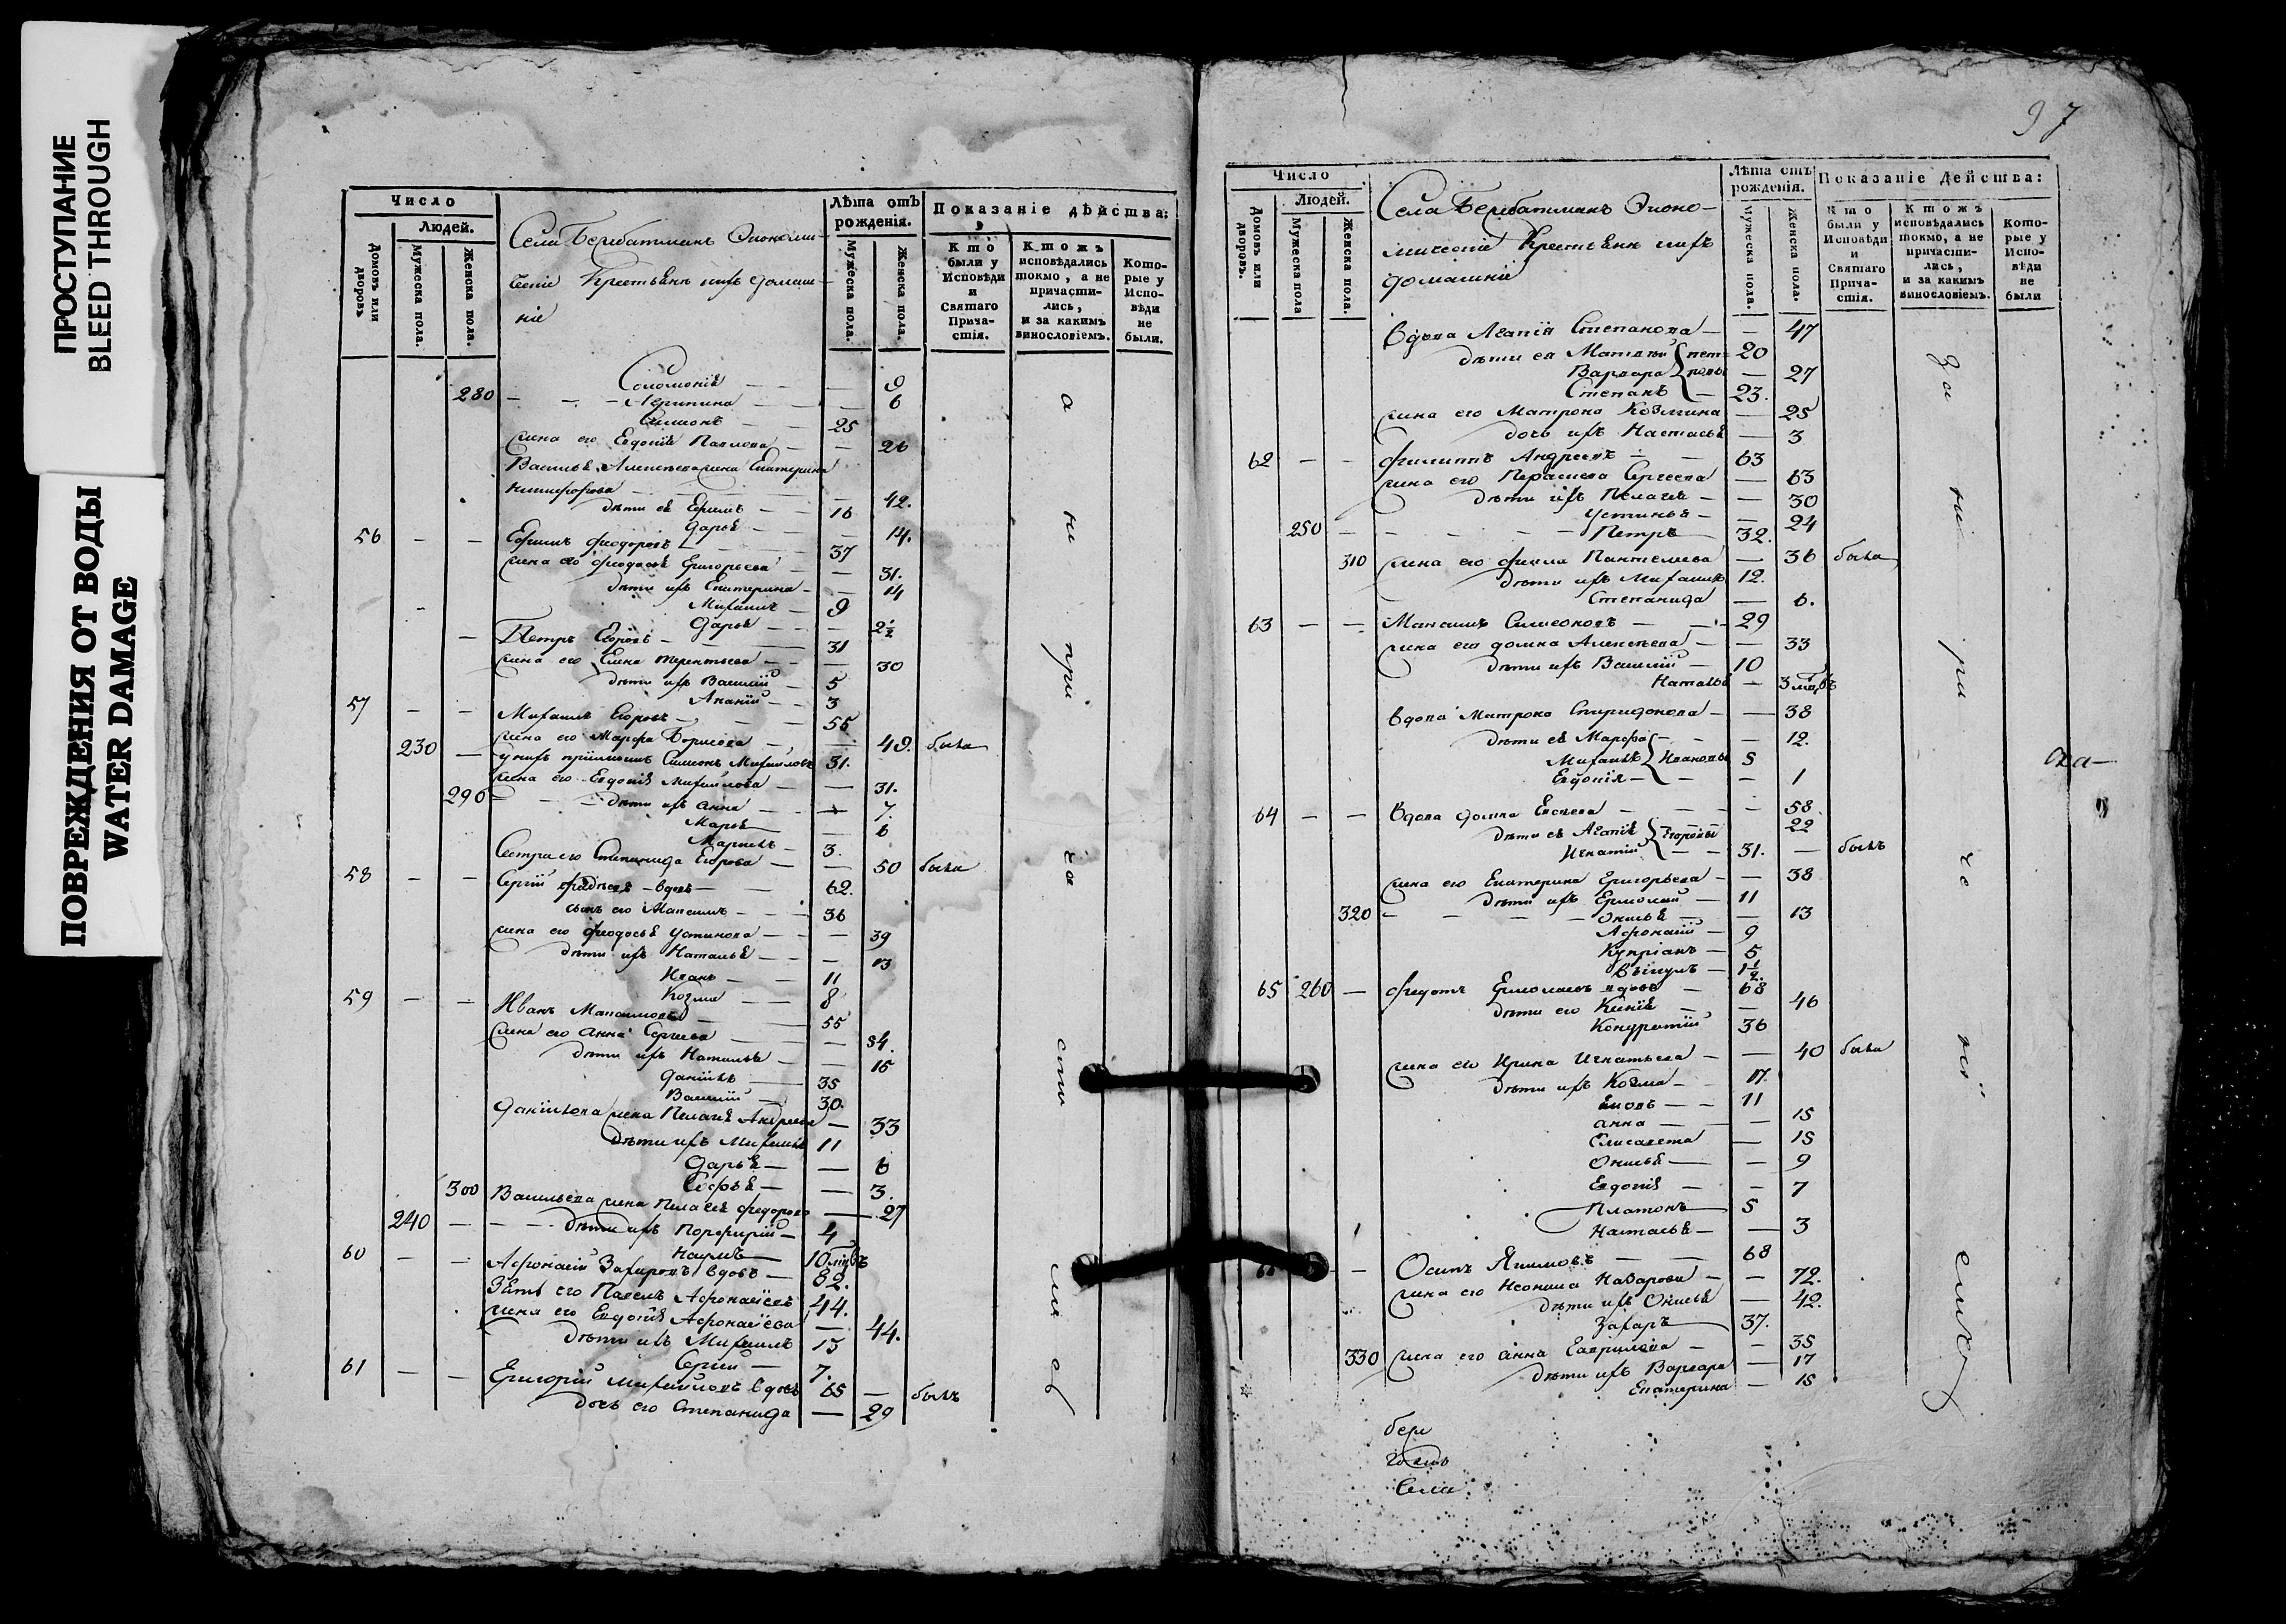 ПРОСТУПАНИЕ
BLEED THROUGH
ПОВРЕЖДЕНИЯ ОТ ВОДЫ
WATER DAMAGE
Число
Людей.
Домовъ или дворовъ
Мужеска пола.
Женска пола.
Села Бербатманъ Экономи-
ческіе Крестьянъ ихъ домаш-
ніе
Лѣта отъ рожденія.
Мужеска пола.
Женска пола.
Показаніе дѣйства:
Кто были у Исповѣди и Святаго Прича-стія.
Ктожъ исповѣдались токмо, а не причасти-лись, и за какимъ винословіемъ.
Кото-рые у Испо-вѣди не были.
Соломонія — — 9
280 — — Агрипина — 6
Симионъ — 25
жена его Евдокія Павлова — 26
Василья Алексѣева жена Екатерина
Никифорова — 42.
дѣти еѣ Ефимъ — 16
Дарья — 14.
56 — — Ефимъ Феодоровъ — 37
жена его Феодосья Григорьева — 31.
дѣти ихъ Екатерина — 14
Михаилъ — 9
Дарья — 2½
— Петръ Егоровъ — 31
жена его Елена Терентьева — 30
дѣти ихъ Василій — 5
Ананій — 3
57 — — Михаилъ Егоровъ — 55
жена его Марфа Борисова — 49. была
230 — у нихъ пріимышъ Симионъ Михайловъ 31.
жена его Евдокія Михайлова — 31.
290 — — дѣти ихъ Анна — 7.
Марья — 6
3.
Сестра его Степанида Егорова — 50 была
58 — — Сергій Фадѣевъ — вдовъ — 62.
сынъ его Максимъ — 36
жена его Феодосья Устинова — 39
дѣти ихъ Наталья — 13
Иванъ — 11
Козма — 8
59 — — Иванъ Максимовъ — 55
жена его Анна Сергеева — 54.
дѣти ихъ Наталья — 15
Даніилъ — 35
Василій — 30.
Даніилова жена Пелагея Андреева — 33
дѣти ихъ Михаилъ 11
Дарья — — 6
Софья — — 3.
300 Васильева жена Пелагея Федорова — 27
240 — — дѣти ихъ Порфирій — 4
Наумъ — 10 мѣсъ
60 — — Афонасій Захаровъ вдовъ — 82.
Зять его Павелъ Афонасіевъ 44.
жена его Евдокія Афонасіева — 44.
дѣти ихъ Михаилъ 15
Сергій — 7.
61 — — Григорій Михайловъ вдовъ 65 — былъ
дочь его Степанида — 29
а
не
при
ча
сти
ли
сь
97
Число
Людей.
Домовъ или дворовъ.
Мужеска пола
Женска пола.
Села Бербатманъ Эконо-
мическіе Крестьянъ ихъ
домашніе
Лѣта отъ рожденія.
Мужеска пола.
Женска пола.
Показаніе дейсшва:
Кто были у Исповѣди и Святаго Прича-стія.
Ктожъ исповѣдались токмо, а не причасти-лись, и за какимъ винословіемъ.
Кото-рые у Испо-вѣди не были
Вдова Агапія Степанова — — 47
дѣти ея Матвѣй 20
Варвара — 27
Степанъ — 23.
жена его Матрона Козмина — 25
дочь ихъ Настасья — 3
62 — — Филиппъ Андреевъ — 63
жена его Парасковія Сергеева — 63
дѣти ихъ Пелагея — 30
Устинья — 24
250 — — Петръ 32.
310 жена его Фекла Пантелиева — 36 была
дѣти ихъ Михаилъ 12.
Степанида — 6.
63 — — Максимъ Симеоновъ — 29
жена его Домна Алексѣева — 33
дѣти ихъ Василій — 10
Наталья — 3 мѣсъ
вдова Матрона Спиридонова — 38
дѣти еѣ Марфа — 12.
Михаилъ } Ивановы 5
Евдокія — — 1
64 — — Вдова Домна Евсеева — 58
дѣти еѣ Агапія } Егоровы 22
Игнатій — 31. — былъ
жена его Екатерина Григорьева — 38
дѣти ихъ Ермолай — 11
320 — — Онисья — 13
Афонасій — 9
Купріанъ — 5
Викулъ — 1½
65 260 — Федотъ Ермолаевъ вдовъ — 68
дѣти его Ксенія — 46
Кондратій 36
жена его Ирина Игнатьева — 40 была
дѣти ихъ Козма — 17.
Яковъ — 11
Анна — 15
Елисавета — 15
Онисья — 9
Евдокія — 7
Платонъ 5
Настасья — 3
66 — — Осипъ Якимовъ — 68
жена его Неонила Назарова — 72.
дѣти ихъ Онисья — 42.
Захаръ 37.
330 жена его Анна Гаврилова — 35
дѣти ихъ Варвара — 17
Екатерина — 15
за
не
ра
че
ні
емъ
бере
Села